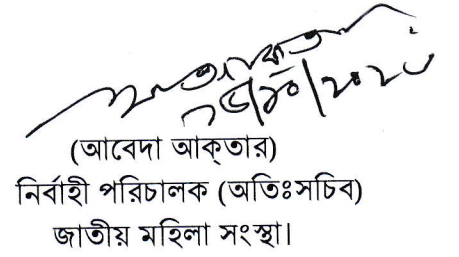 (আবেদা আক্তার)
নির্বাহী পরিচালক (অতিঃসচিব)
জাতীয় মহিলা সংস্থা।